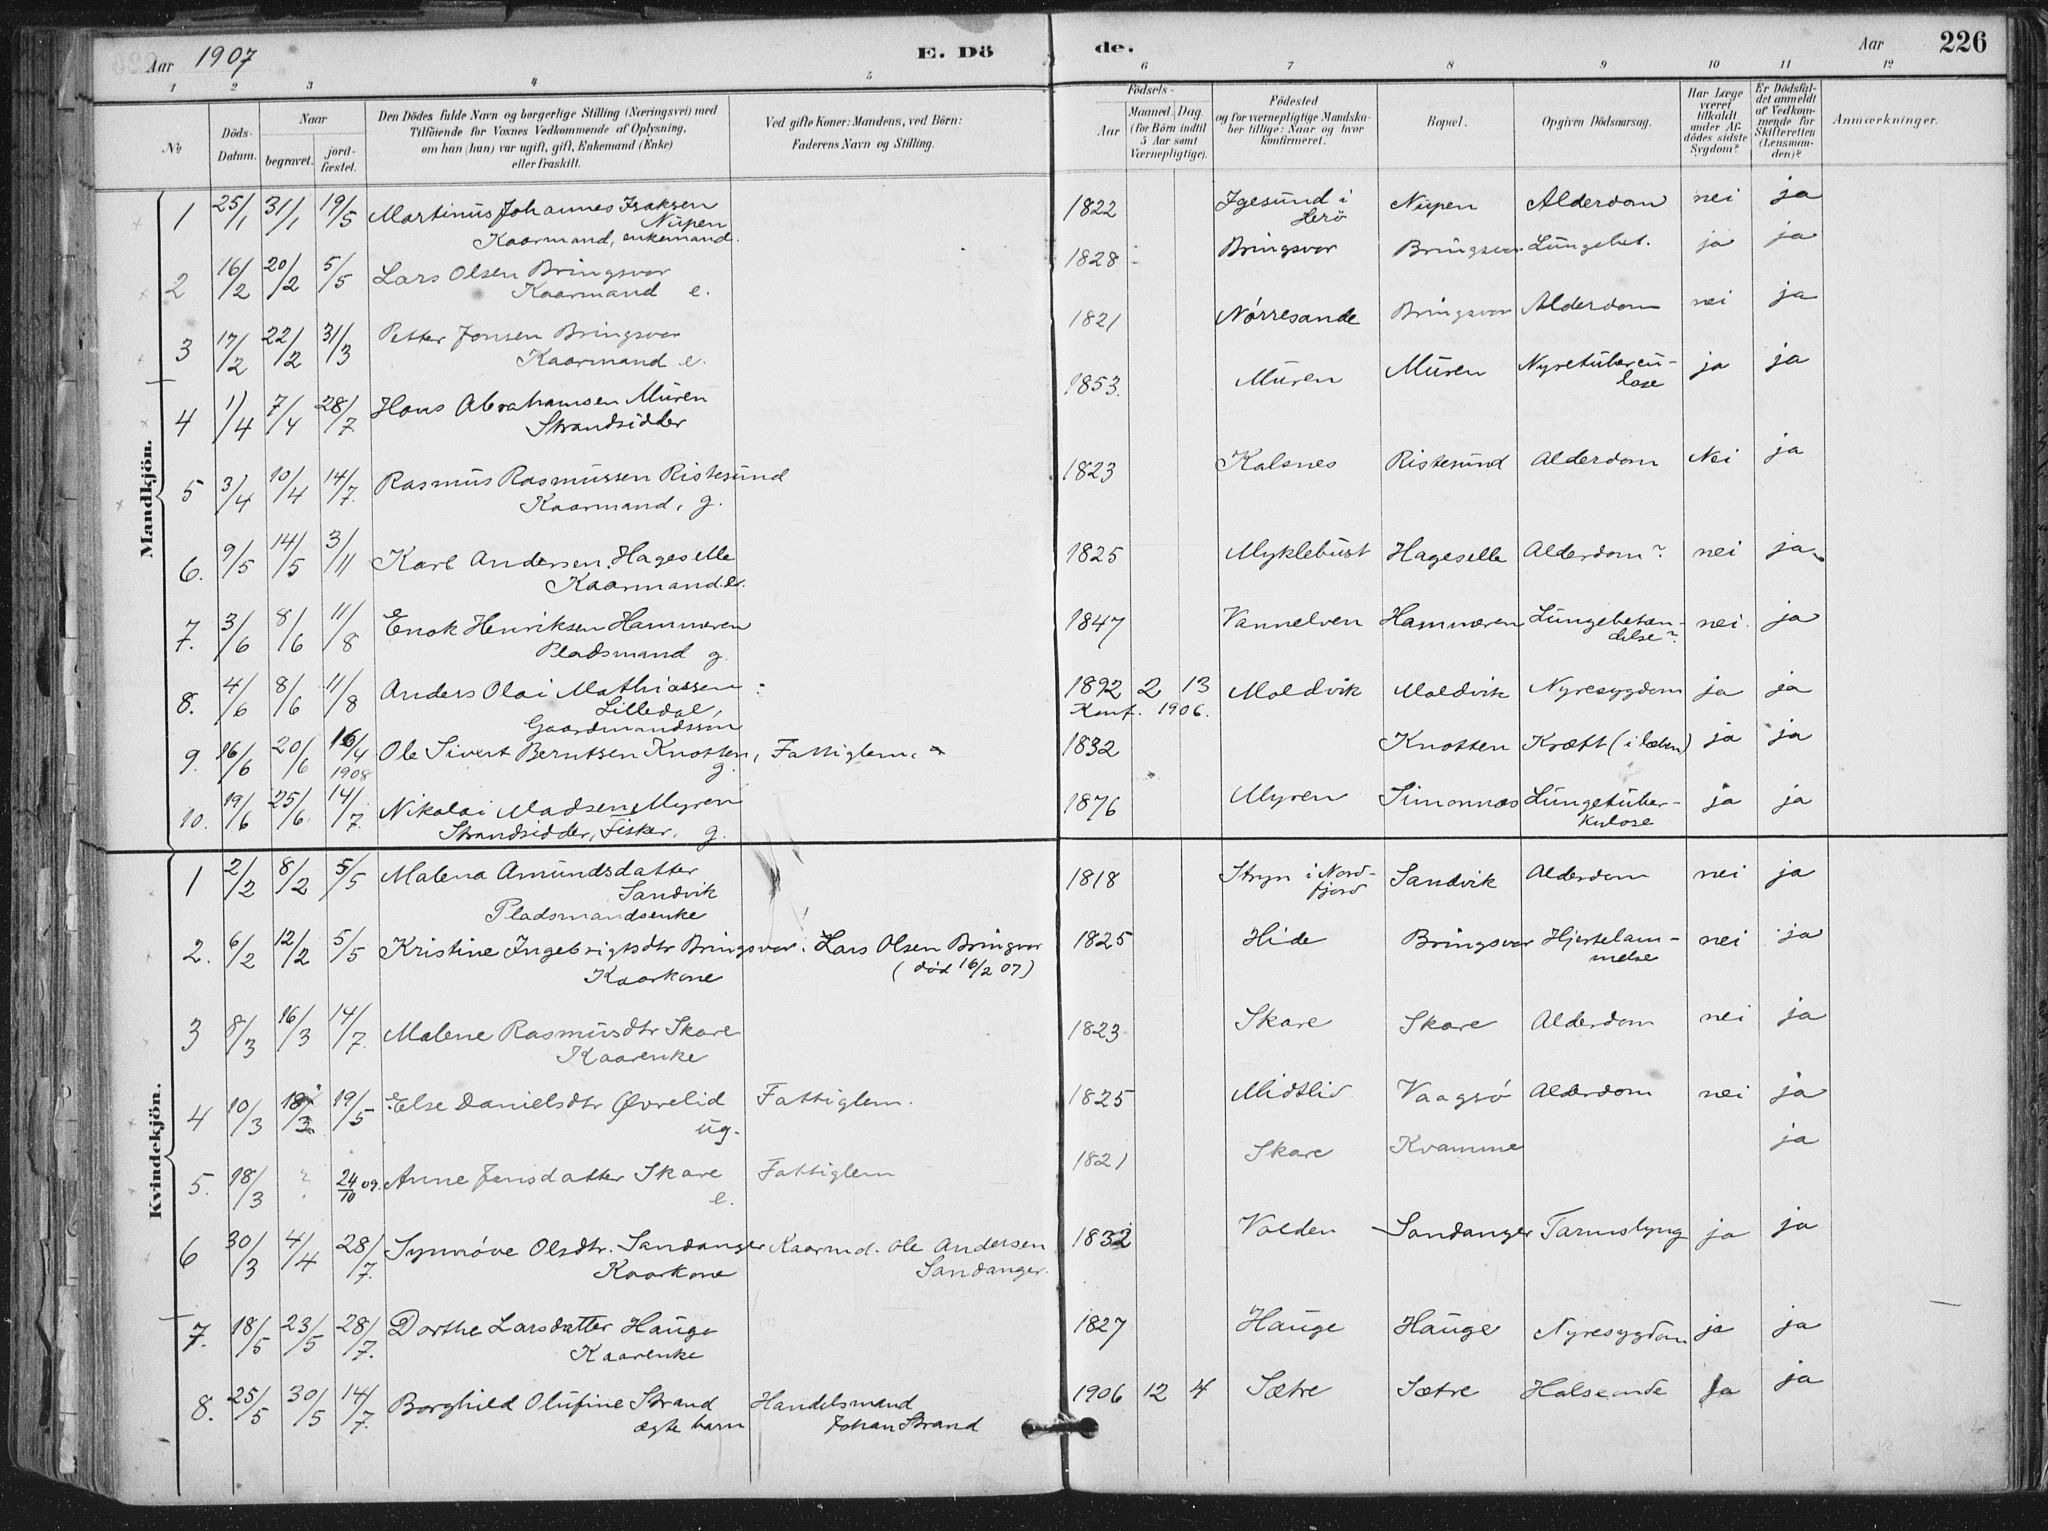 Aar 1907
E. Döde.
Aar 226
1 2 3 4 5 6 7 8 9 10 11 12
No
Döds-Datum.
Naar
begravet.
jord-fæstet.
Den Dödes fulde Navn og borgerlige Stilling (Næringsvei) med
Tilföiende for Voxnes Vedkommende af Oplysning,
om han (hun) var ugift, gift, Enkemand (Enke)
eller fraskilt.
Ved gifte Koner: Mandens, ved Börn:
Faderens Navn og Stilling.
Födsels-
Aar
Maaned. Dag.
(for Börn indtil
5 Aar samt
Værnepligtige).
Födested
og for værnepligtige Mandska-
ber tillige: Naar og hvor
konfirmeret.
Bopæl.
Opgiven Dödsaarsag.
Har Læge
været
tilkaldt
under Af-
dödes sidste
Sygdom?
Er Dödsfal-
det anmeldt
af Vedkom-
mende for
Skifteretten
(Lensman-
den)?
Anmærkninger.
Mandkjön.
1 25/1 31/1 19/5 Martinus Johannes Isaksen 1822 Igesund i Nupen Alderdom nei ja
Nupen Herö
Kaarmand, enkemand.
2 16/2 20/2 5/5 Lars Olsen Bringsvor 1828 Bringsvor Bringsvor Lungebet. ja ja
Kaarmand e.
3 17/2 22/2 31/3 Petter Jonsen Bringsvor 1821 Nørresande Bringsvor Alderdom nei ja
Kaarmand e.
4 1/4 7/4 28/7 Hans Abrahamsen Muren 1853. Muren Muren Nyretubercu-
lose ja ja
Strandsidder
5 3/4 10/4 14/7. Rasmus Rasmussen Ristesund 1823 Kalsnes Ristesund Alderdom Nei ja
Kaarmand, g.
6. 9/5 14/5 3/11 Karl Andersen Hageselle 1825 Myklebust Hageselle Alderdom? nei ja
Kaarmand. e.
7. 3/6 8/6 11/8 Enok Henriksen Hamnæren 1847 Vannelven Hamnæren Lungebetæn-
delse? nei. ja
Pladsmand g.
8. 4/6 8/6 11/8 Anders Olai Mathiassen 1892 2 13 Moldvik Moldvik Nyresygdom ja ja
Lilledal, Konf. 1906.
Gaardmandssøn
9. 16/6 20/6 16/4 1908 Ole Sivert Berntsen Knotten, Fattiglem. 1832 Knotten Kræft (i læben) ja ja
g.
10. 19/6 25/6 14/7. Nikolai Madsen Myren 1876 Myren Simonnæs Lungetuber-
kulose ja ja
Strandsidder, fisker, g.
Kvindekjön.
1 2/2 8/2 5/5 Malena Amundsdatter 1818 Stryn i Nord-
fjord Sandvik Alderdom nei ja
Sandvik
Pladsmandsenke
2. 6/2 12/2 5/5 Kristine Ingebrigtsdtr Bringsvor. Lars Olsen Bringsvor 1825 Hide Bringsvor Hjertelam-
melse nei ja
Kaarkone (død 16/2 07)
3 8/3 16/3 14/7. Malene Rasmusdtr Skare 1823 Skare Skare Alderdom nei ja
Kaarenke
4 10/3 18/3 19/5 Else Danielsdtr Øvrelid Fattiglem. 1825 Midtlid Vaagsö Alderdom nei ja
ug.
5. 18/3 ? 24/10 09. Anne Jonsdatter Skare Fattiglem 1821 Skare Kvamme ja
e.
6 30/3 4/4 28/7. Synnøve Olsdtr. Sandanger Kaarmd. Ole Andersen 1832 Volden Sandanger Tarmslyng ja ja
Kaarkone Sandanger.
7. 18/5 23/5 28/7. Dorthe Larsdatter Hauge 1827 Hauge Hauge Nyresygdom ja ja
Kaarenke
8. 25/5 30/5 14/7. Borghild Olufine Strand Handelsmand 1906 12 4 Sætre Sætre Halsonde ja ja
ægte barn Johan Strand